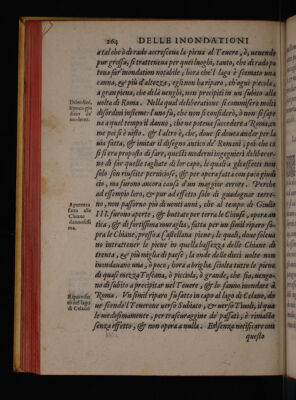 264 DELLE INONDATIONI
a tal che ò di rado accresceua la piena al Teuere, ò, uenendo
pur grossa, si tratteneua per quei luoghi, tanto, che di rado po
teua far inondation notabile; hora che'l lago è scemato una
canna, & più d'altezza, egli non ha riparo, ch'ogni picciola,
a gran piena, che delà uenghi, non precipiti in un subito alla
uolta di Roma. Nella qual deliberatione si commisero molti
disordini insieme: l'uno fu, che non si considerò, ò non si sape
ua a quel tempo il danno, che ne poteua succedere a Roma, co
me poi s'è uisto. & l'altro è, che, doue si deueua andar per la
uia fatta, & imitar il disegno antico de' Romani, poi che co
sì si era proposto di fare, questi moderni ingegnieri delibererono
di far quelle tagliate di lor capo, le quali a gli effetti non
solo son riuscite perniciose, & per opera fatta con poco giudi
cio, ma furono ancora causa d'un maggior errore. Perche
ad essempio loro, & pur ad effetto solo di guadagnar terre-
no, non passorno più di uenti anni, che al tempo di Giulio
III. furono aperte, & buttate per terra le Chiuse, opera an
tica, & di fortissima muraglia, fatta per un simil riparo so-
pra le Chiane, presso a Castellone fiume, le quali, doue soleua
no intrattener le piene in quella bassezza delle Chiane di
trenta, & più miglia di paese; la onde delle dieci uolte non
inondauano una, ò poco, hora a briglia sciolta tutte le piene
di quasi mezza Toscana, ò picciole, ò grande, che sia, uengo-
no di subito a precipitar nel Teuere, & lo fanno inondare à
Roma. Vn simil riparo fu fatto in capo al lago di Celano, do
ue scende'l Teuerone uerso Subiaco, & uerso Tiuoli, il qua
le medesimamente, per trascuraggine de' passati, è rimasto
senza effetto, & non opera a nulla. Et senza uetificare con
questo
Disordini,
successi già
ditio de'
moderni.
Apertura
fatta alle
Chiane
dannosissi
ma.
Riparo fat
to nel lago
di Celano.